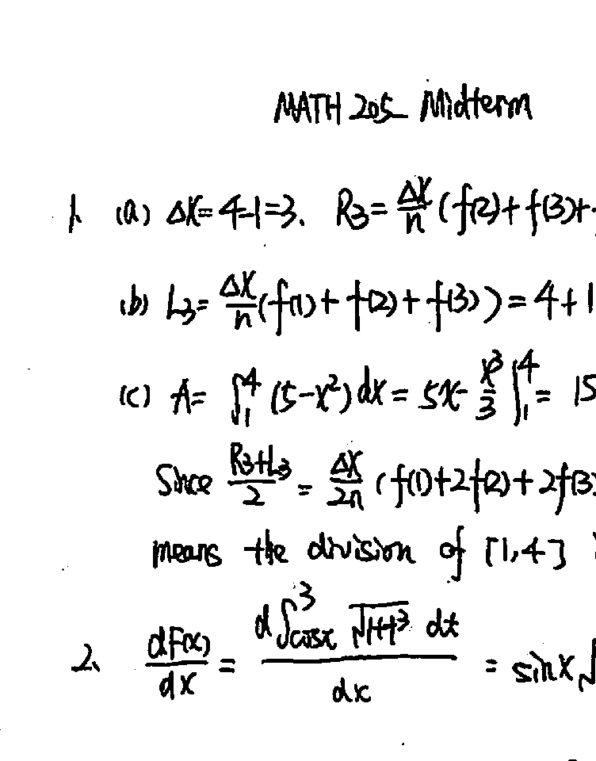 MATH 205 Midterm
1. (a) ΔX=4-1=3. R3= ΔX/n (f(2)+f(3)+
(b) L3= ΔX/n (f(1)+f(2)+f(3))=4+1
(c) A= ∫₁⁴ (5-x²)dx = 5x- x³/3 |₁⁴ = 15
Since (R3+L3)/2 = ΔX/2n (f(1)+2f(2)+2f(3
means the division of [1,4]
2. dF(x)/dx = d∫_cosx^3 √(1+t³) dt / dx = sinx√